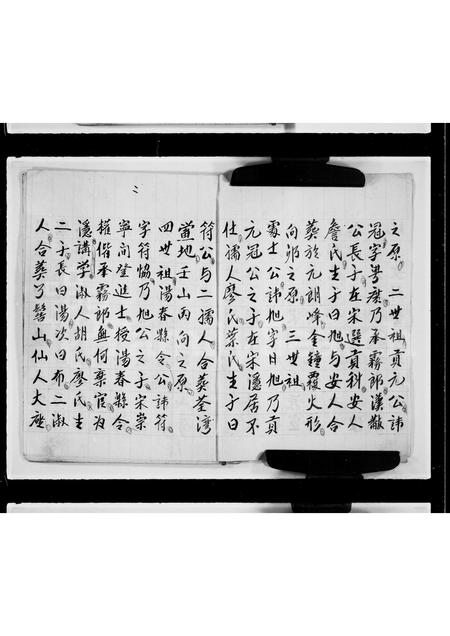 之原 二世祖貢元公諱
冠字粤乃承霧郎漢黻
公長子在宋選貢科安人
詹氏生子曰旭与安人合
葬於元朗峰金鐘覆火形
向邜之原 三世祖
處士公諱旭字日旭乃貢
元冠公之子在宋隱居不
仕孺人廖氏葉氏生子曰
符公与二孺人合葬荃灣
當地壬山丙向之原
四世祖湯春縣令公諱符
字符恊乃旭公之子宋崇
寧间登進士授湯春縣令
權偕承霧郎無何棄官為
隱講学淑人胡氏廖氏生
二子長曰湯次曰布二淑
人合葬丫髻山仙人大座